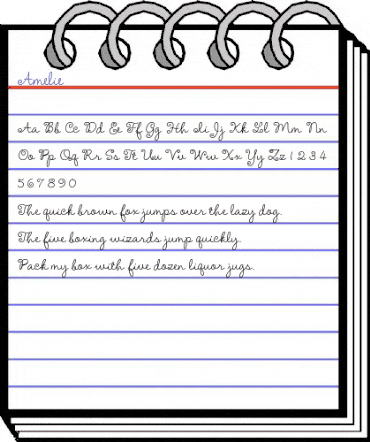 Amelie
Aa Bb Cc Dd Ee Ff Gg Hh Ii Jj Kk Ll Mm Nn
Oo Pp Qq Rr Ss Tt Uu Vv Ww Xx Yy Zz 1 2 3 4
5 6 7 8 9 0
The quick brown fox jumps over the lazy dog.
The five boxing wizards jump quickly.
Pack my box with five dozen liquor jugs.